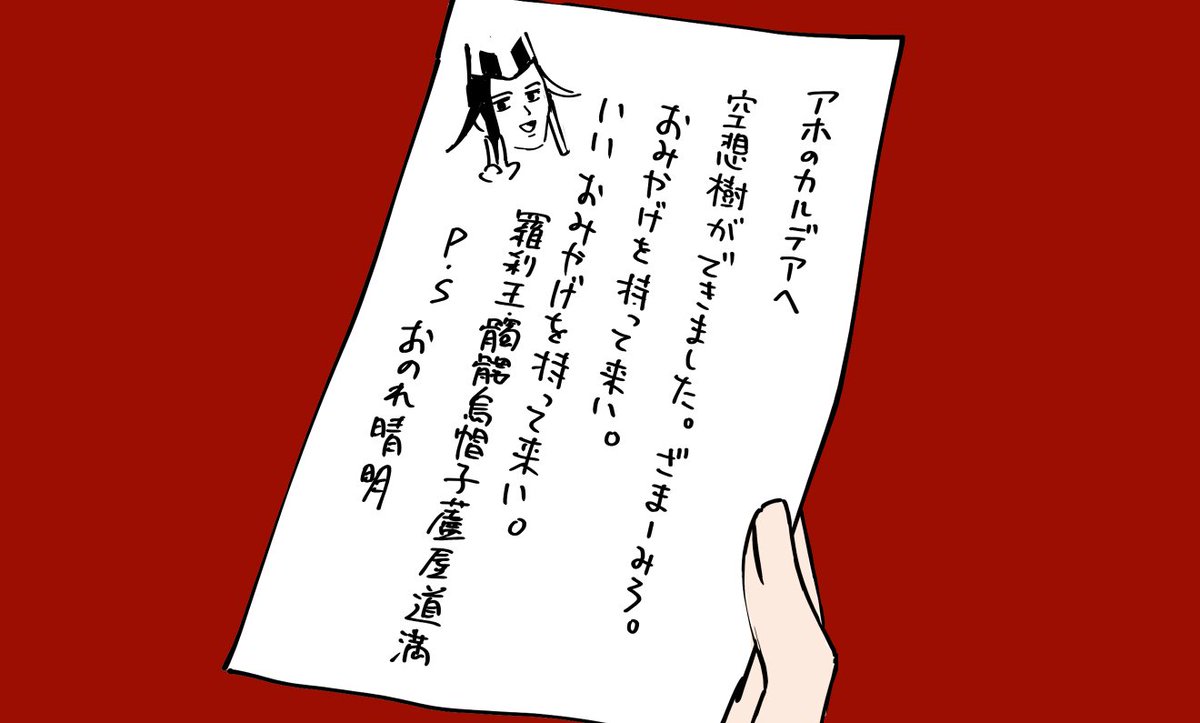 アホのカルデアへ
空想樹ができました。ざまーみろ。
おみやげを持って来い。
いい おみやげを持って来い。
羅刹王・髑髏烏帽子蘆屋道満
P.S おのれ晴明